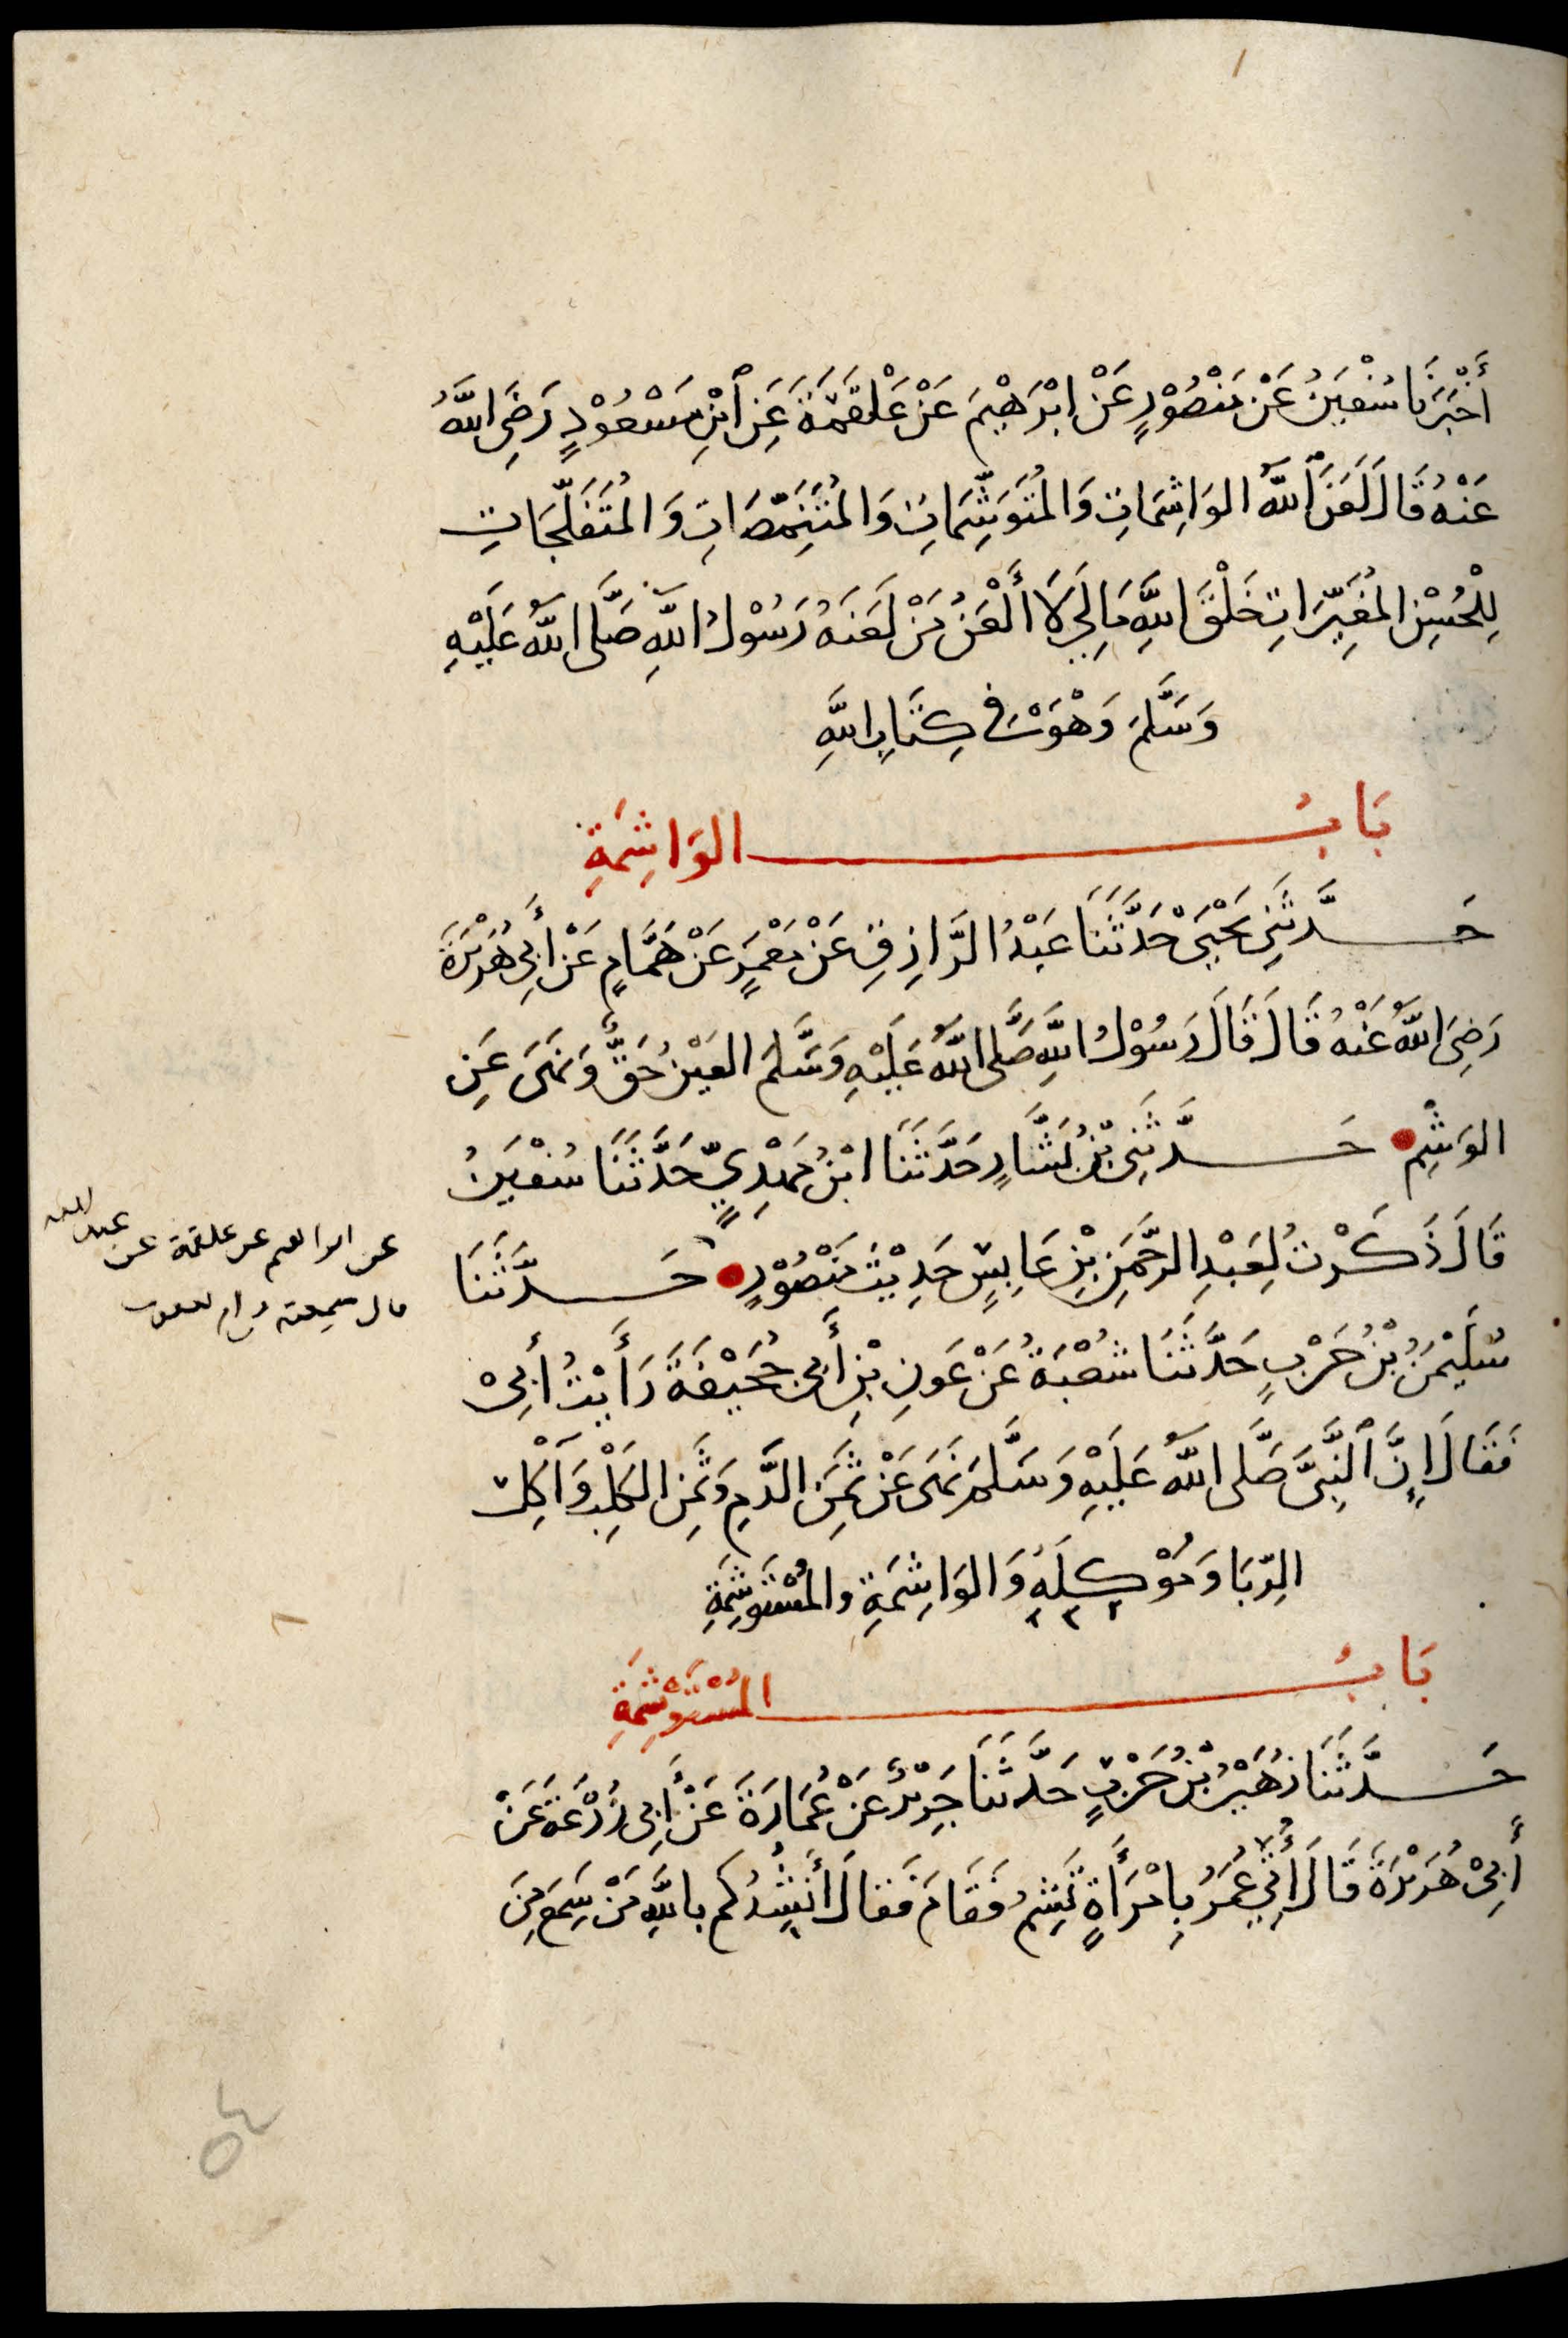 أَخْبَرَنَا سُفْيَنُ عَنْ مَنْصُوْرٍ عَنْ اِبْرَهِيْمَ عَنْ عَلْقَمَةَ عَنِ ٱبْنِ مَسْعُوْدٍ رَضِىَ اللَّهُ
عَنْهُ قَالَ لَعَنَ ٱللَّهُ الوَاشِمَاتِ وَالمُتَوَشِّمَاتِ وَالمُتَنَمِّصَاتِ وَالمُتَفَلِّجَاتِ
لِلْحُسْنِ المُغَيِّرَاتِ خَلْقَ اللَّهِ مَا لِىَ لَا أَلْعَنُ مَنْ لَعَنَهُ رَسُوْلُ اللَّهِ صَلَّى اللَّهُ عَلَيْهِ
وَسَلَّمَ وَهْوَ فى كِتَابِ اللَّهِ
بَابُ الوَاشِمَةِ
حَدَّثَنِى يَحْيَىٰ حَدَّثَنَا عَبْدُ الرَّازِقِ عَنْ مَعْمَرٍ عَنْ هَمَّامٍ عَنْ أَبِى هُرَيْرَةَ
رَضِىَ اللَّهُ عَنْهُ قَالَ قَالَ رَسُوْلُ اللَّهِ صَلَّى اللَّهُ عَلَيْهِ وَسَلَّمَ العَيْنُ حَقٌّ وَنَهَى عَنِ
الوَشْمِ حَدَّثَنِى بْنُ بَشَّارٍ حَدَّثَنَا ابْنُ مَهْدِيٍّ حَدَّثَنَا سُفْيَنُ
قَالَ ذَكَرْتُ لِعَبْدِ الرَّحْمَنِ بْنِ عَابِسٍ حَدِيْثَ مَنْصُوْرٍ حَدَّثَنَا
عن ابراهيم عن علقمة عن عبد الله
قال سمعته من ام يعقوب
سُلَيْمَنُ بْنُ حَرْبٍ حَدَّثَنَا شُعْبَةُ عَنْ عَونِ بْنِ أَبِى جُحَيْفَةَ رَأَيْتُ أَبِىْ
فَقَالَ إِنَّ ٱلنَّبِىَّ صَلَّى اللَّهُ عَلَيْهِ وَسَلَّمَ نَهَى عَنْ ثَمَنِ الدَّمِ وَثَمَنِ الكَلْبِ وَآكِلِ
الرِّبَا وَمُوْكِلِهِ وَالوَاشِمَةِ والمُسْتَوشِمَةِ
بَابُ المُسْتَوْشِمَةِ
حَدَّثَنَا زُهَيْرُ بْنُ حَرْبٍ حَدَّثَنَا جَرِيْرٌ عَنْ عُمَارَةَ عَنْ أَبِى زُرْعَةَ عَنْ
أَبِىْ هُرَيْرَةَ قَالَ أُتِىَ عُمَرُ بِامْرَأَةٍ تَشِمُ فَقَامَ فَقالَ أَنْشُدُكُم بِاللَّهِ مَنْ سَمِعَ مِنَ